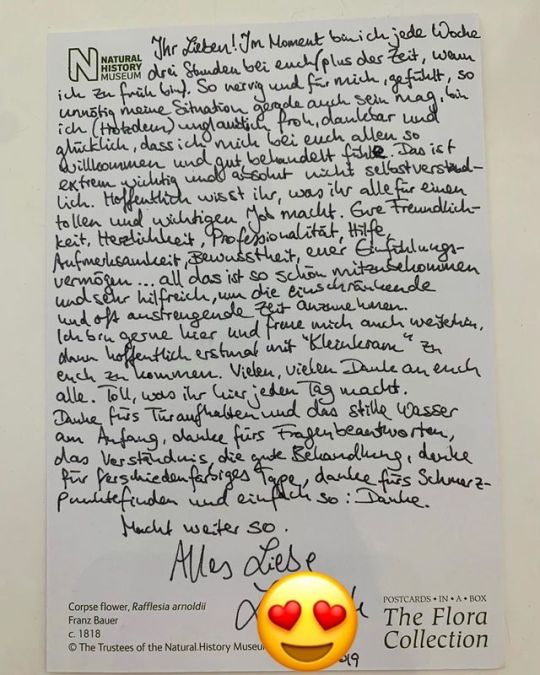 NATURAL
HISTORY
MUSEUM
Ihr Lieben! Im Moment bin ich jede Woche
drei Stunden bei euch (plus der Zeit, wenn
ich zu früh bin). So nervig und für mich, gefühlt, so
unnötig meine Situation gerade auch sein mag, bin
ich (trotzdem) unglaublich froh, dankbar und
glücklich, dass ich mich bei euch allen so
willkommen und gut behandelt fühle. Das ist
extrem wichtig und absolut nicht selbstverständ-
lich. Hoffentlich wisst ihr, was ihr alle für einen
tollen und wichtigen Job macht. Eure Freundlich-
keit, Herzlichkeit, Professionalität, Hilfe,
Aufmerksamkeit, Bewusstheit, euer Einfühlungs-
vermögen ... all das ist so schön mitzubekommen
und sehr hilfreich, um die einschränkende
und oft anstrengende Zeit anzunehmen.
Ich bin gerne hier und freue mich auch weiterhin,
dann hoffentlich erstmal mit "Kleinkram" zu
euch zu kommen. Vielen, vielen Danke an euch
alle. Toll, was ihr hier jeden Tag macht.
Danke fürs Türaufhalten und das stille Wasser
am Anfang, danke fürs Fragenbeantworten,
das Verständnis, die gute Behandlung, danke
für verschiedenfarbiges Tape, danke fürs Schmerz-
punktefinden und einfach so: Danke.
Macht weiter so.
Alles Liebe
Corpse flower, Rafflesia arnoldii
Franz Bauer
c. 1818
© The Trustees of the Natural History
POSTCARDS • IN • A • BOX
The Flora
Collection